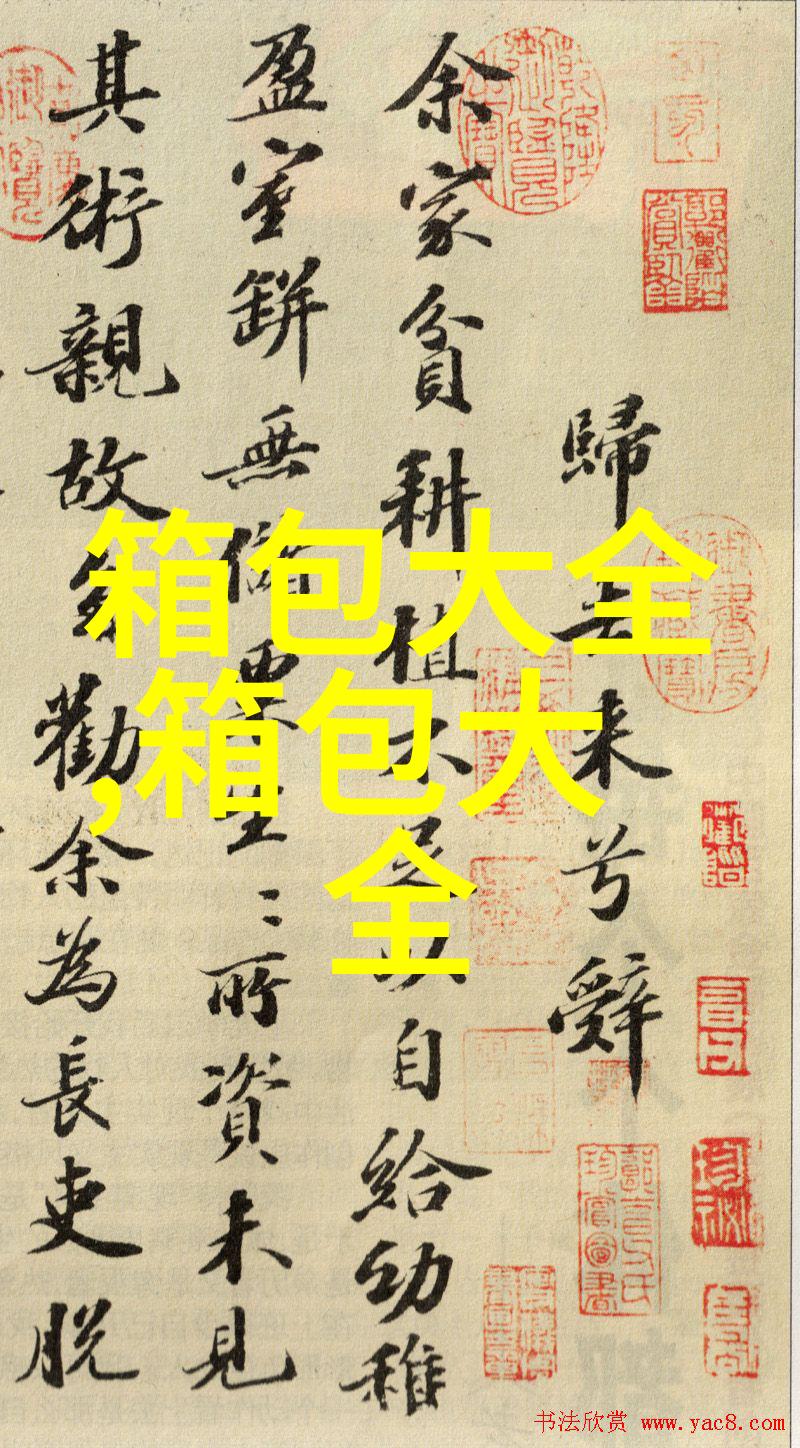 歸去来兮辭
余家貧耕植不足以自給幼稚
盈室缾無儲粟生〻所資未見
其術親故多勸余為長吏脱
箱包大全
,箱包大
全
书法欣赏 www.yac8.com